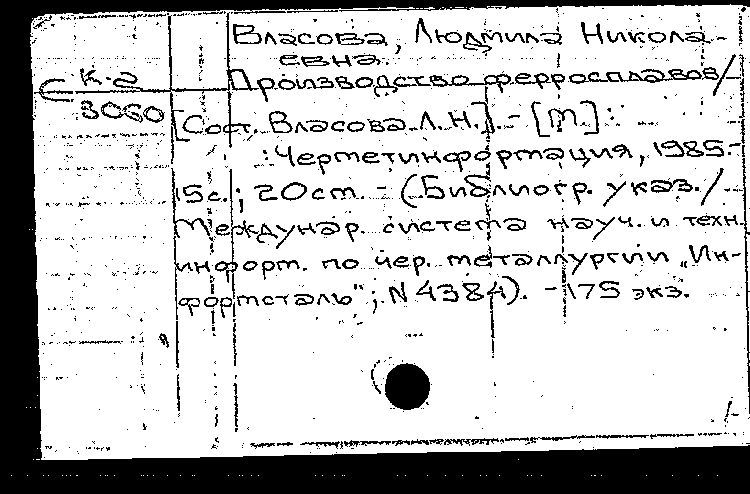 Власова, Людмила Никола-
евна.
С К.-2
3060
Производство ферросплавов/
[Сост. Власова Л.Н.]. - [М.]:
: Черметинформация, 1985.-
15с.; 20см. - (Библиогр. указ./
Междунар. система науч. и техн.
информ. по чер. металлургии „Ин-
формсталь"; N 4384). - 175 экз.